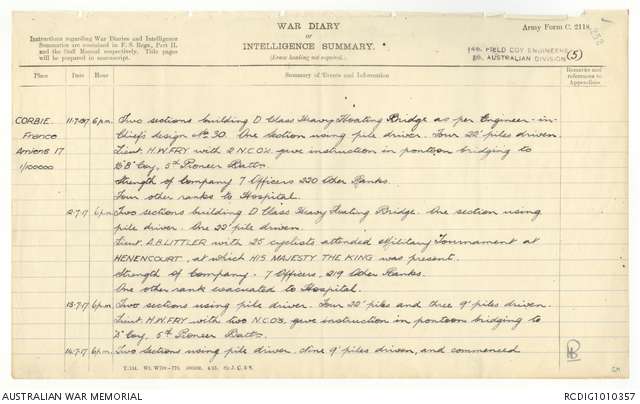 WAR DIARY
or
INTELLIGENCE SUMMARY.
(Erase heading not required.)
Army Form C. 2118.
Instructions regarding War Diaries and Intelligence
Summaries are contained in F. S. Regs., Part II.
and the Staff Manual respectively. Title pages
will be prepared in manuscript.
FIELD COY ENGINEERS
AUSTRALIAN DIVISION
(5)
Place Date Hour Summary of Events and Information Remarks and
references to
Appendices
CORBIE 11-7-17 6 p.m. Two sections building D Class Heavy Floating Bridge as per Engineer-in-
France Chiefs design No. 30. One section using pile driver. Four 22' piles driven.
Amiens 17 Lieut H.W. FRY with 2 N.C.O's. give instruction in pontoon bridging to
1/100000 "B" Coy, 5th Pioneer Battn.
Strength of Company 7 Officers 220 Other Ranks.
Four other ranks to Hospital.
12-7-17 6 p.m. Two sections building D Class Heavy Floating Bridge. One section using
pile driver. One 22' pile driven.
Lieut. A.B. LITTLER with 25 cyclists attended Military Tournament at
HENENCOURT, at which HIS MAJESTY THE KING was present.
Strength of Company. 7 Officers, 219 Other Ranks.
One other rank evacuated to Hospital.
13-7-17 6 p.m. Two sections using pile driver. Four 22' piles and three 9' piles driven.
Lieut. H.W. FRY with two N.C.O's, give instruction in pontoon bridging to
D Coy, 5th Pioneer Battn.
14-7-17 6 p.m. Two sections using pile driver. Nine 9' piles driven, and commenced
AUSTRALIAN WAR MEMORIAL
RCDIG1010357